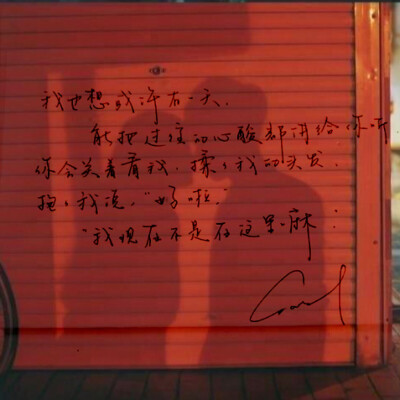 我也想或许有一天,
能把过往的心酸都讲给你听
你会笑着看我,揉揉我的头发,
抱抱我说,“好啦,”
“我现在不是在这里嘛”